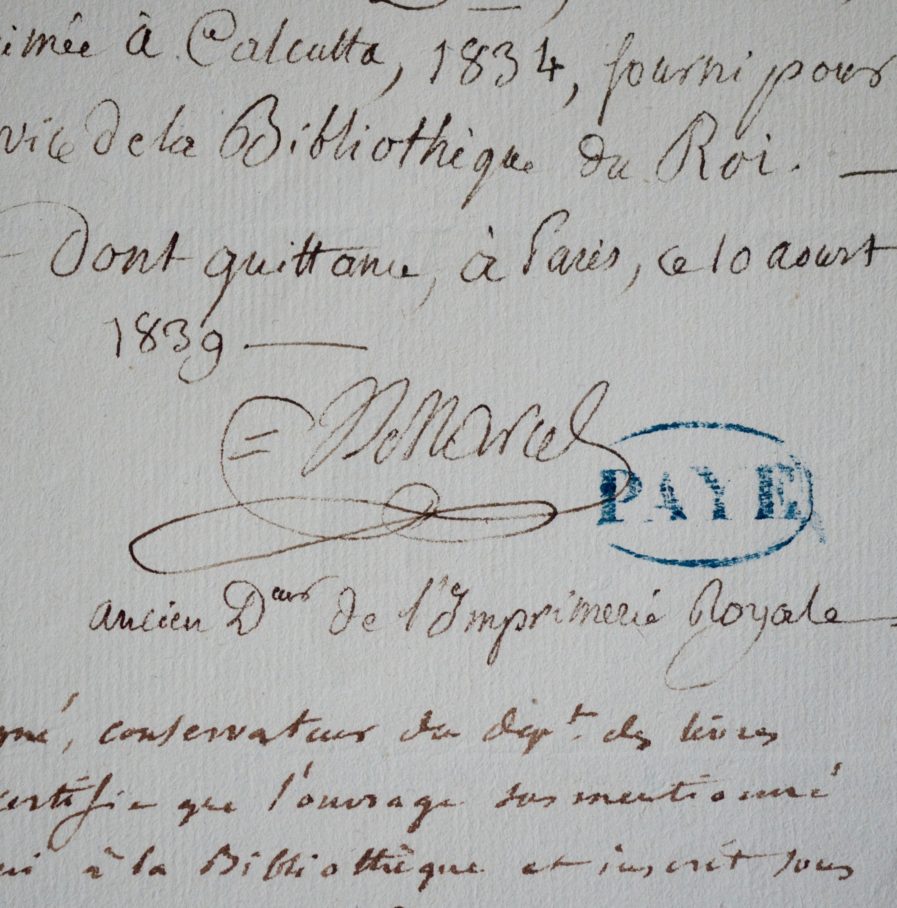 imée à Calcutta, 1834, fourni pour
vice de la Bibliothèque du Roi. —
Dont quittance, à Paris, ce 10 aoust
1839 —
Marcel
PAYÉ
ancien Deur de l'Imprimerie Royale
gné, conservateur du dépt. des livres
certifie que l'ouvrage susmentionné
ni à la Bibliothèque et inscrit sous